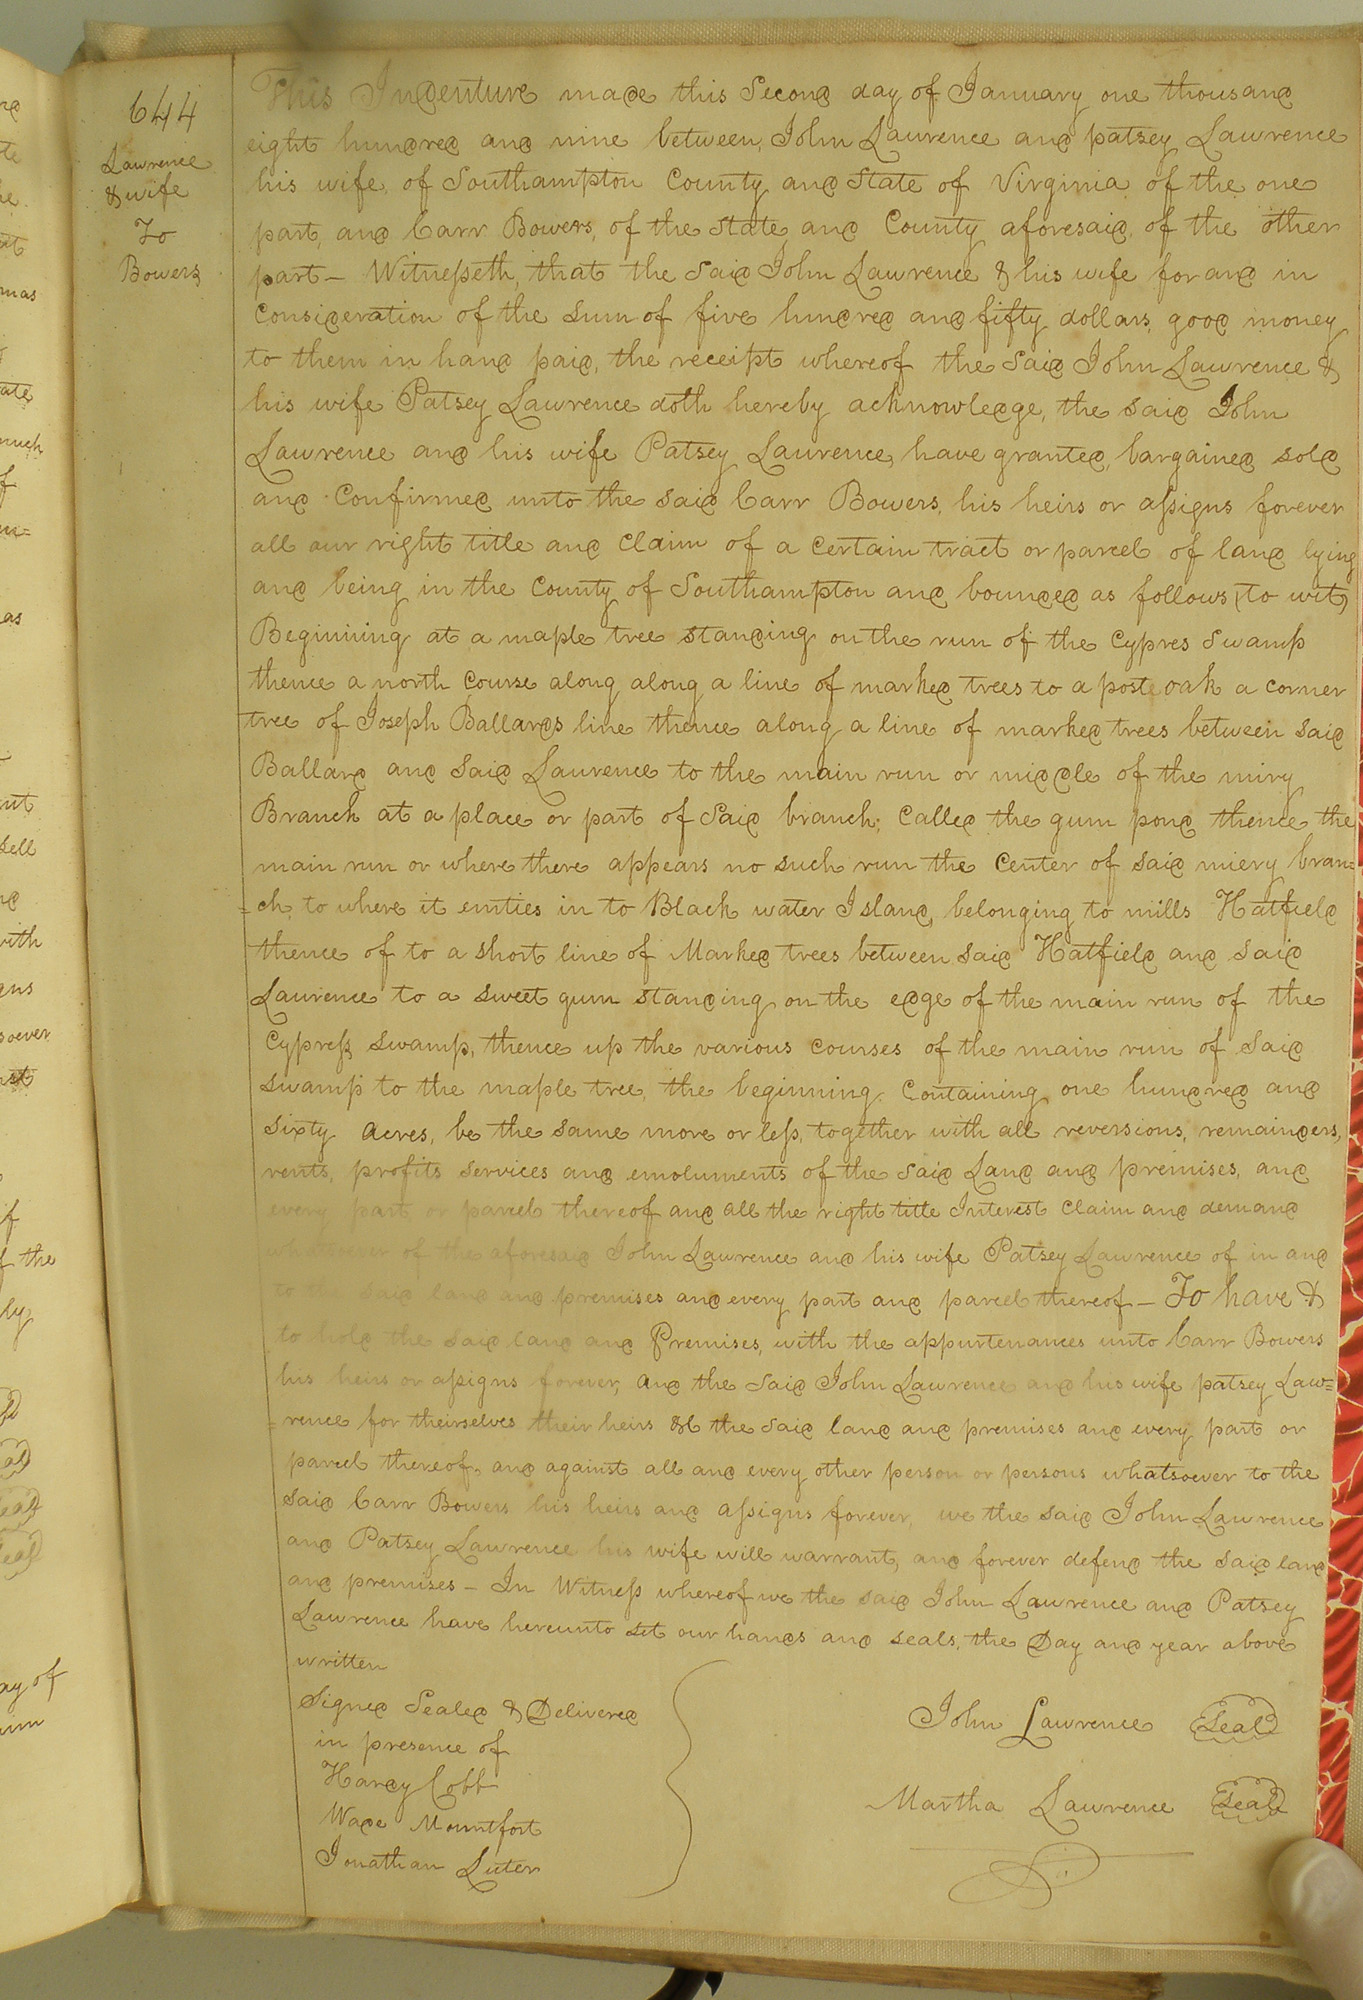 644
Lawrence
& wife
To
Bowers
This Indenture made this Second day of January one thousand
eight hundred and nine between, John Lawrence and patsey Lawrence
his wife, of Southampton County and State of Virginia of the one
part, and Carr Bowers, of the State and County aforesaid, of the other
part – Witnesseth, that the said John Lawrence & his wife for and in
Consideration of the sum of five hundred and fifty dollars, good money
to them in hand paid, the receipt whereof the said John Lawrence &
his wife Patsey Lawrence doth hereby acknowledge, the said John
Lawrence and his wife Patsey Lawrence, have granted, bargained sold
and Confirmed unto the said Carr Bowers, his heirs or assigns forever
all our right title and claim of a certain tract or parcel of land lying
and being in the County of Southampton and bounded as follows (to wit)
Beginning at a maple tree standing on the run of the Cypres Swamp
thence a north Course along along a line of marked trees to a post oak a corner
tree of Joseph Ballards line thence along a line of marked trees between said
Ballard and said Lawrence to the main run or middle of the miry
Branch at a place or part of said branch, Called the gum pond thence the
main run or where there appears no such run the Center of said miery bran=
=ch, to where it emties in to Black water Island, belonging to mills Hatfield
thence of to a short line of Marked trees between said Hatfield and said
Lawrence to a sweet gum standing on the edge of the main run of the
Cypress swamp, thence up the various courses of the main run of said
swamp to the maple tree, the beginning Containing one hundred and
sixty acres, be the same more or less, together with all reversions, remainders,
rents, profits services and emoluments of the said Land and premises, and
every part or parcel thereof and all the right title Interest Claim and demand
whatsoever of the aforesaid John Lawrence and his wife Patsey Lawrence of in and
to the said land and premises and every part and parcel thereof – To have &
to hold the said land and Premises, with the appurtenances unto Carr Bowers
his heirs or assigns forever, and the said John Lawrence and his wife patsey Law=
=rence for theirselves their heirs &c the said land and premises and every part or
parcel thereof, and against all and every other person or persons whatsoever to the
said Carr Bowers his heirs and assigns forever, we the said John Lawrence
and Patsey Lawrence his wife will warrant, and forever defend the said land
and premises – In Witness whereof we the said John Lawrence and Patsey
Lawrence have hereunto set our hands and seals, the Day and year above
written
Signed Sealed & Delivered
in presence of
Hardy Cobb
Wade Mountfort
Jonathan Luter
John Lawrence Seal
Martha Lawrence Seal